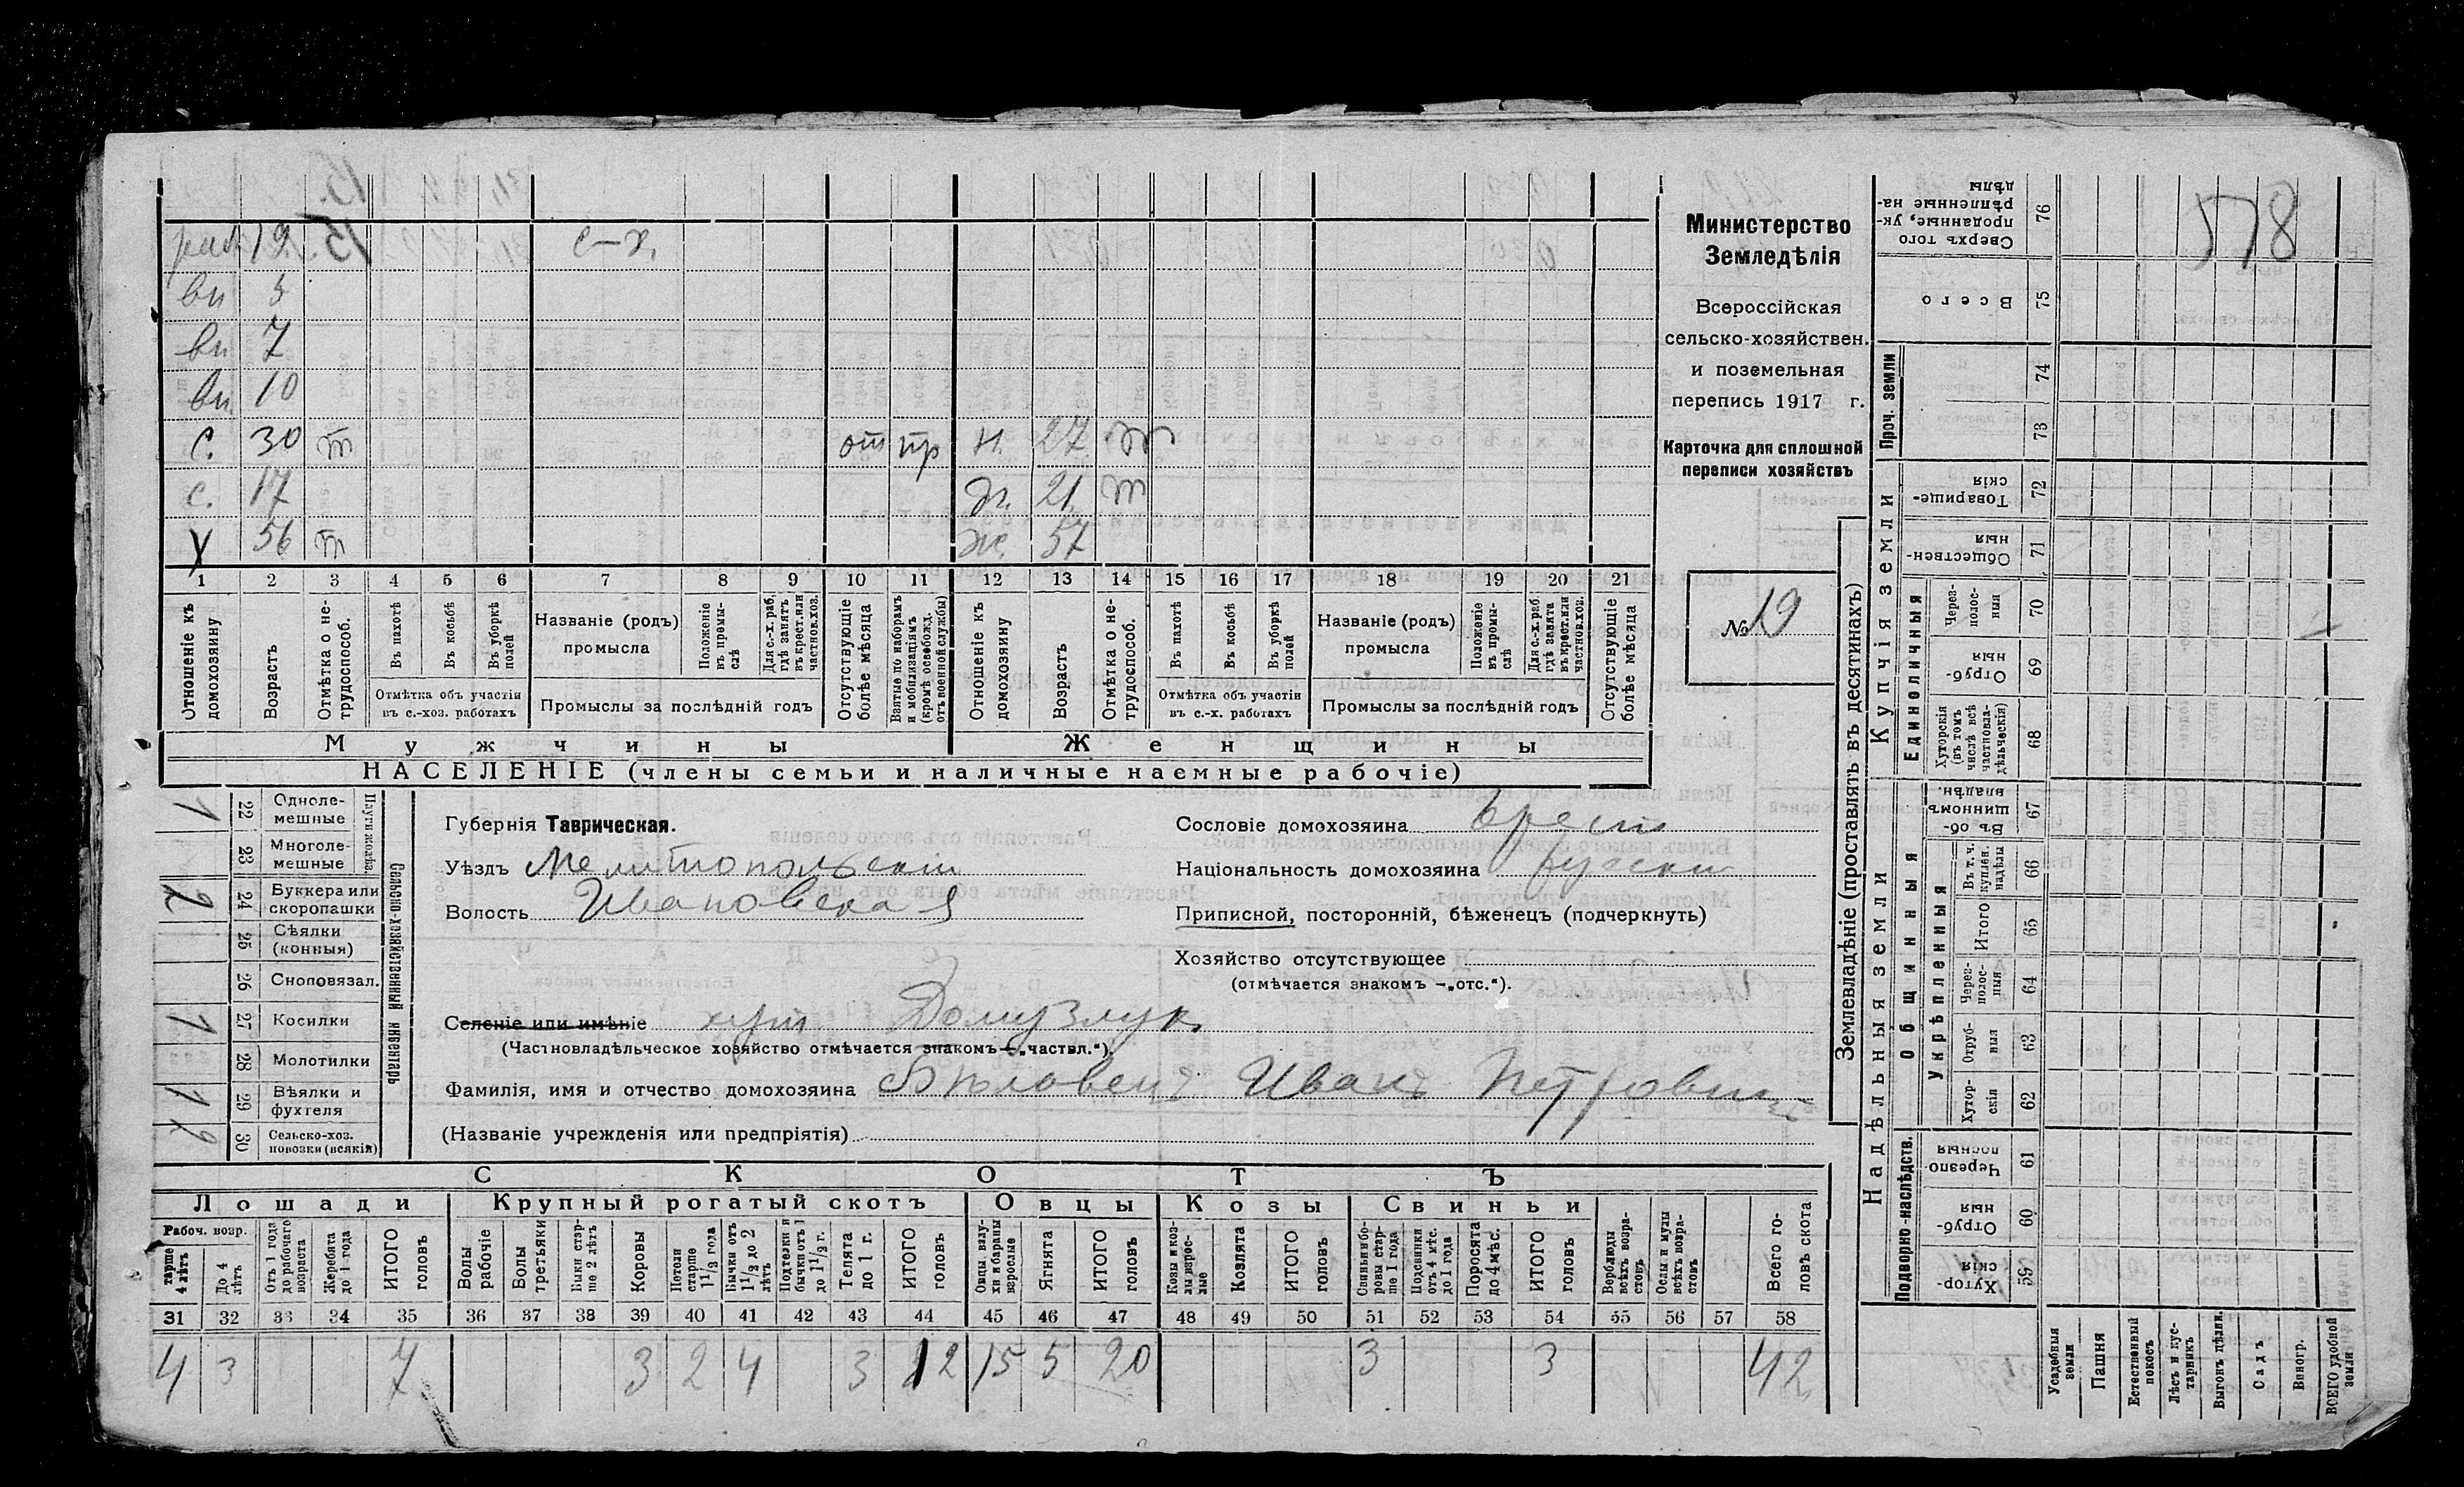 578
раб 19 с-х.
вн 5
вн 7
вн 10
с. 30 т от пр н. 27 т
с. 17 дч. 21 т
У 56 т ж. 57
1 2 3 4 5 6 7 8 9 10 11 12 13 14 15 16 17 18 19 20 21
Отношеніе къ домохозяину
Возрастъ
Отмѣтка о не-
трудоспособ.
Въ пахотѣ
Въ косьбѣ
Въ уборкѣ полей
Отмѣтка объ участіи
въ с.-хоз. работахъ
Названіе (родъ)
промысла
Положеніе въ промы-
слѣ
Для с.-х. раб. гдѣ занятъ въ крест. или частнов. хоз.
Промыслы за послѣдній годъ
Отсутствующіе болѣе мѣсяца
Взятые по наборамъ и мобилизаціямъ (кромѣ освобожд. отъ военной службы)
Отношеніе къ домохозяину
Возрастъ
Отмѣтка о не-
трудоспособ.
Въ пахотѣ
Въ косьбѣ
Въ уборкѣ полей
Отмѣтка объ участіи
въ с.-х. работахъ
Названіе (родъ)
промысла
Положеніе въ промы-
слѣ
Для с.-х. раб. гдѣ занята въ крест. или частнов. хоз.
Промыслы за послѣдній годъ
Отсутствующіе болѣе мѣсяца
Мужчины Женщины
НАСЕЛЕНІЕ (члены семьи и наличные наемные рабочіе)
Министерство
Земледѣлія
Всероссійская
сельско-хозяйствен.
и поземельная
перепись 1917 г.
Карточка для сплошной
переписи хозяйствъ
№ 19
Сельско-хозяйственный инвентарь
Одноле-
мешные 22 1
Многоле-
мешные 23
Буккера или
скоропашки 24 2
Сѣялки
(конныя) 25
Сноповязал. 26
Косилки 27 1
Молотилки 28
Вѣялки и
фухтеля 29 1
Сельско-хоз.
повозки (всякія) 30 2
Губернія Таврическая.
Уѣздъ Мелитопольскій
Волость Ивановская
Сословіе домохозяина крест
Національность домохозяина русскій
Приписной, посторонній, бѣженецъ (подчеркнуть)
Хозяйство отсутствующее
(отмѣчается знакомъ —„отс.“).
Селеніе или имѣніе хут Домузлук
(Частновладѣльческое хозяйство отмѣчается знакомъ—„частвл.“).
Фамилія, имя и отчество домохозяина Бѣловецъ Иванъ Петровичъ
(Названіе учрежденія или предпріятія)
СКОТЪ
Лошади Крупный рогатый скотъ Овцы Козы Свиньи
Рабоч. возр.
тарше 4 лѣтъ
До 4 лѣтъ
Отъ 1 года до рабочаго возраста
Жеребята до 1 года
ИТОГО головъ
Волы рабочіе
Волы третьяки
Быки стар-
ше 2 лѣтъ
Коровы
Нетели старше 1½ года
Бычки отъ 1½ до 2 лѣтъ
Подтелки и бычки отъ 1 до 1½ г.
Телята до 1 г.
ИТОГО головъ
Овцы, валу-
хи и бараны взрослые
Ягнята
ИТОГО головъ
Козы и коз-
лы взрос-
лые
Козлята
ИТОГО головъ
Свиньи бо-
ровы стар-
ше 1 года
Подсвинки отъ 4 мѣс. до 1 года
Поросята до 4 мѣс.
ИТОГО головъ
Верблюды всѣхъ возра-
стовъ
Ослы и мулы всѣхъ возра-
стовъ
Всего го-
ловъ скота
31 32 33 34 35 36 37 38 39 40 41 42 43 44 45 46 47 48 49 50 51 52 53 54 55 56 57 58
4 3 7 3 2 4 3 12 15 5 20 3 3 42
Землевладѣніе (проставлять въ десятинахъ)
Надѣльныя земли Купчія земли Проч. земли
Подворно-наслѣдств.
Общинныя
Укрѣпленныя
Единоличныя
Сверхъ того проданные, ук-
рѣпленные на-
дѣлы 76
Всего 75
74
73
Товарище-
скія 72
Обществен-
ныя 71
Через-
полос-
ныя 70
Отруб-
ныя 69
Хуторскія (въ томъ числѣ всѣ частновла-
дѣльческія) 68
Въ об-
щинномъ владѣн. 67
Въ т. ч. куплен. надѣлы 66
Итого 65
Через-
полос-
ныя 64
Отруб-
ныя 63
Хутор-
скія 62
Черезпо-
лосныя 61
Отруб-
ныя 60
Хутор-
скія 59
Усадебныя земли
Пашня
Естественный покосъ
Лѣсъ и кус-
тарникъ
Выгонъ дѣлим.
Садъ
Виногр.
ВСЕГО удобной земли